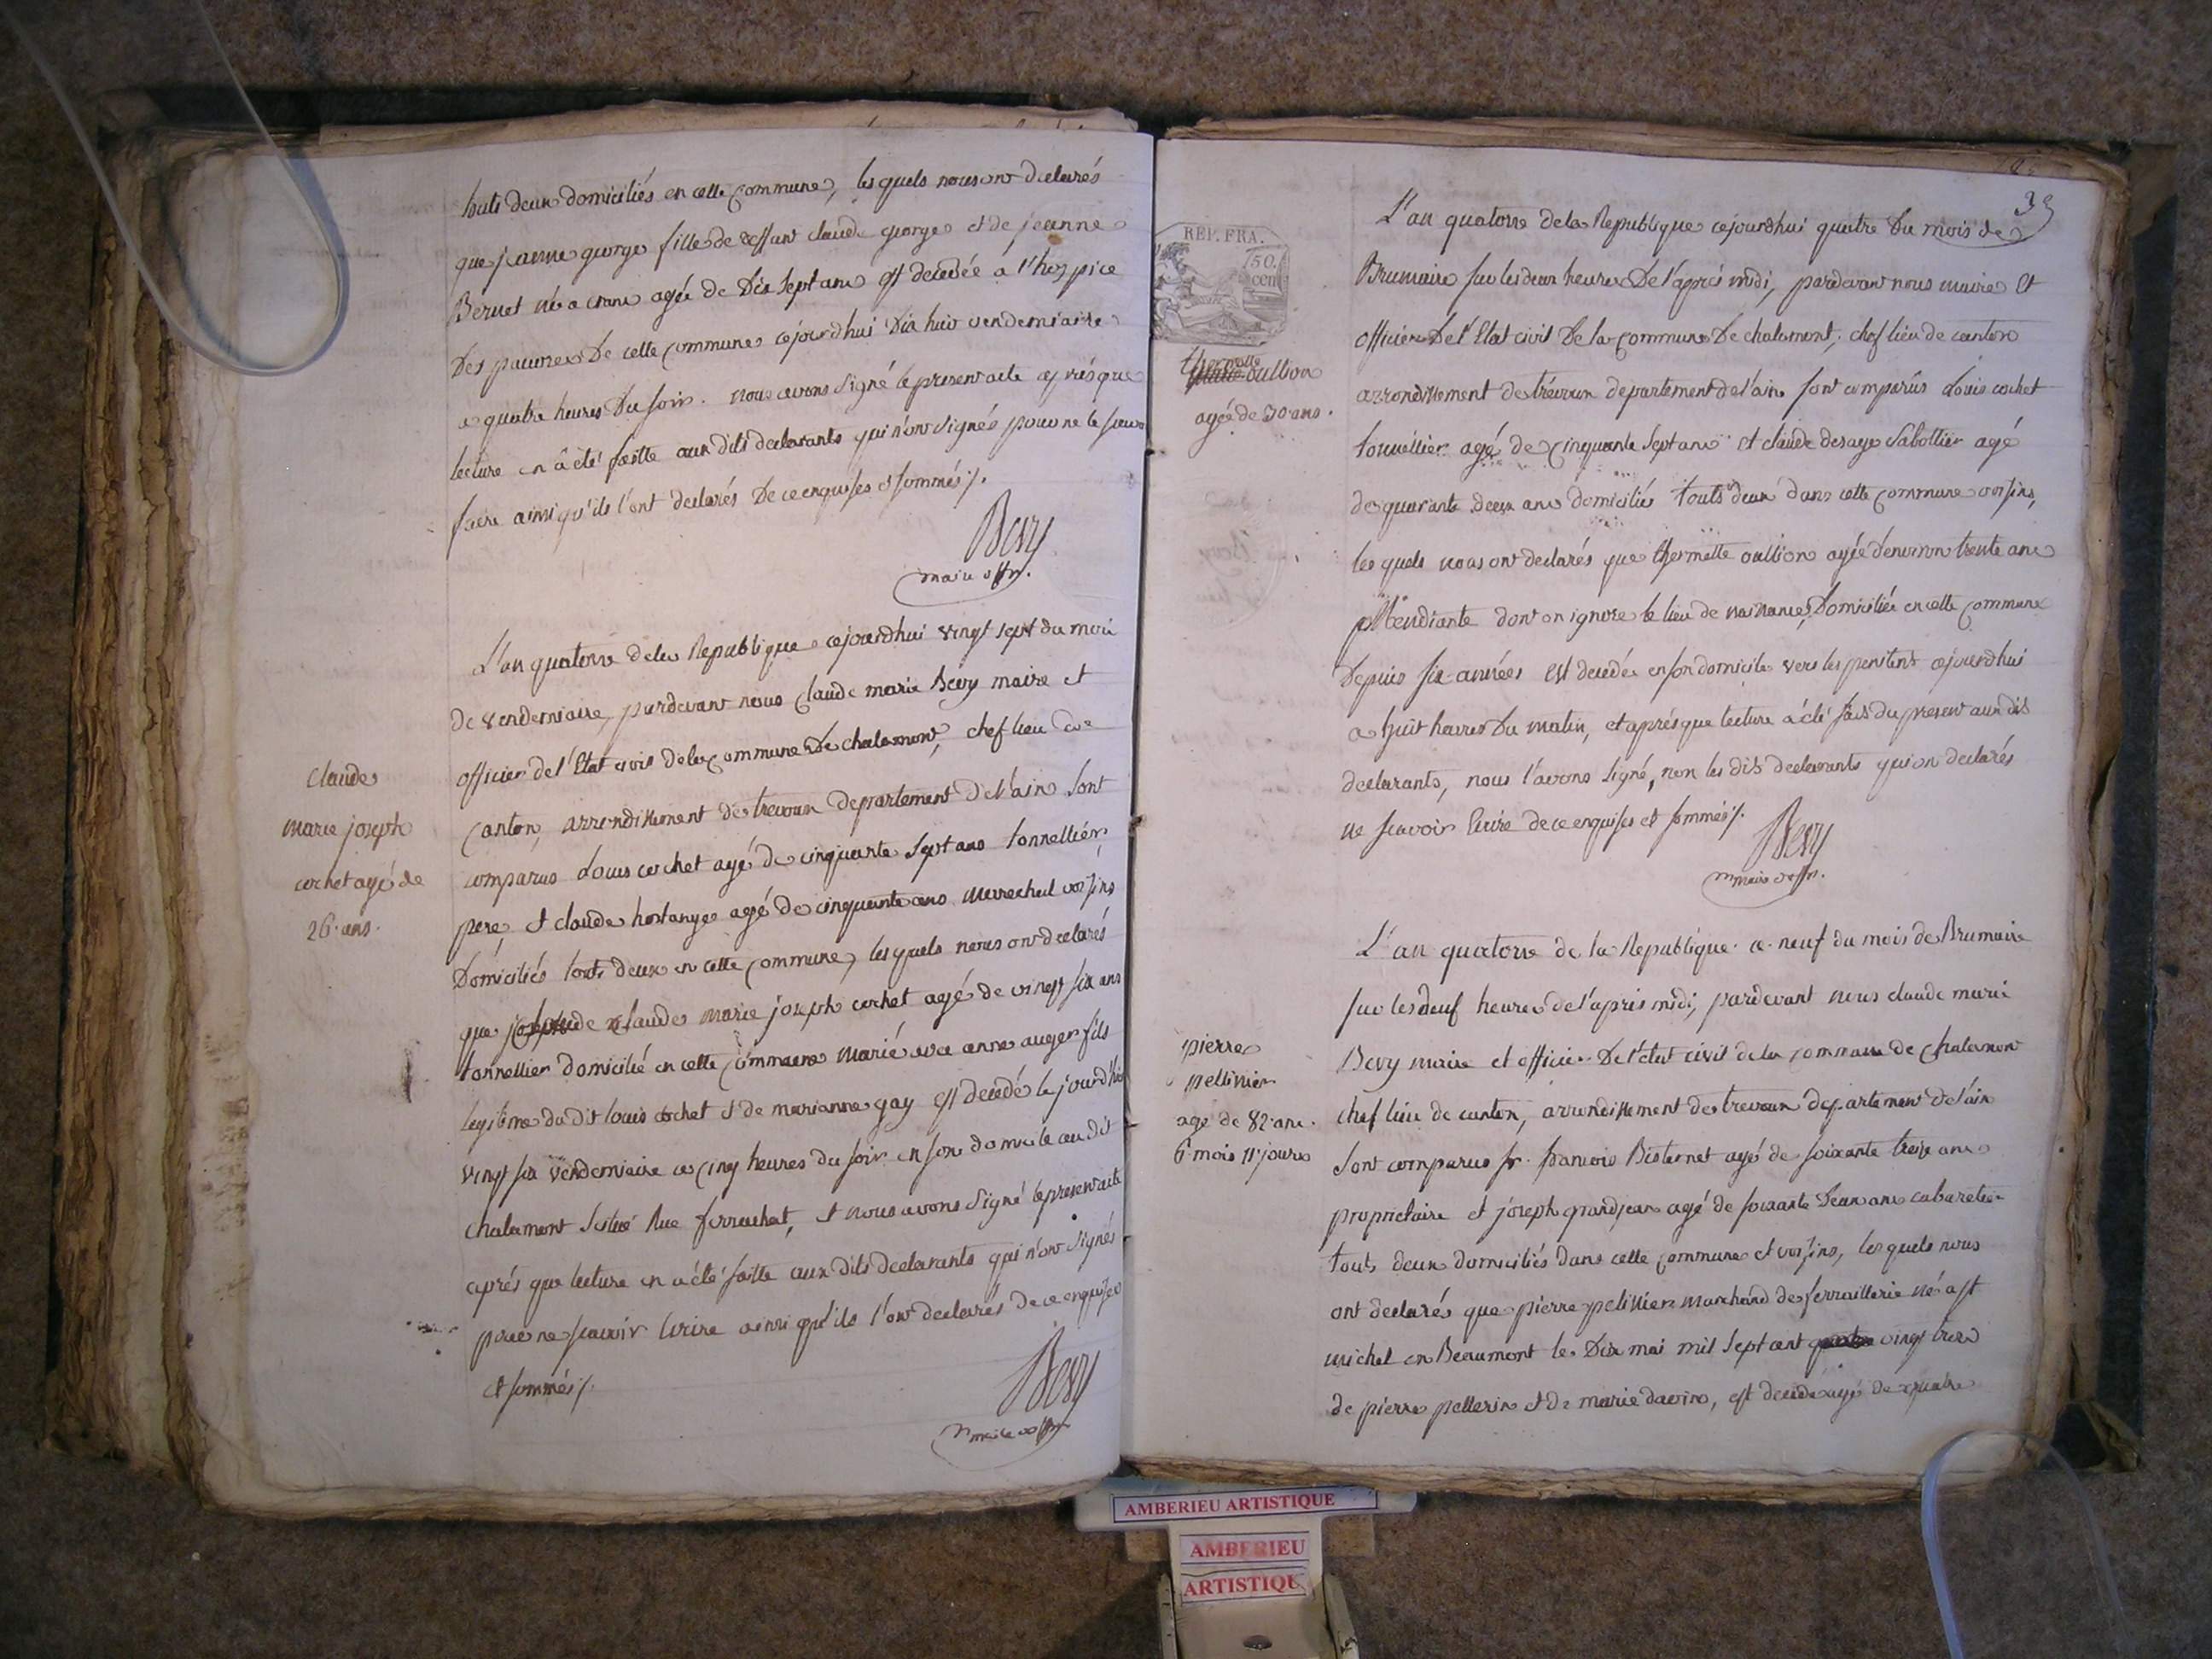 touts deux domiciliés en cette commune, les quels nous ont declarés
que jeanne george fille de deffunt claude george et de jeanne
Bernet né a crans agée de dix sept ans est decedée à l'hospice
des pauvres de cette commune cejourdhui dix huit vendemiaire
a quatre heures du soir. nous avons signé le present acte aprés que
lecture en à été faitte aux dits declarants qui n'ont signés pour ne le scavoir
faire ainsi qu'ils l'ont declarés de ce enquises et sommés ./.
Bevy
maire offr.
L'an quatorze de la Republique cejourdhui vingt sept du mois
de vendemiaire, pardevant nous claude marie Bevy maire et
officier de l'Etat civil de la commune de chalamont, chef lieu de
canton, arrondissement de trevoux departement de l'ain sont
comparus Louis cochet agé de cinquante sept ans tonnellier,
pere, et claude hostange agé de cinquante ans marechal voisins
domiciliés touts deux en cette commune, les quels nous ont declarés
que claude marie joseph cochet agé de vingt six ans
tonnellier domicilié en cette commune marié avec anne auger fils
legitime du dit louis cochet et de marianne gay est decedé le jourd'hier
vingt six vendemiaire a cinq heures du soir en son domicile au dit
chalamont situé Rue ferrachat, et nous avons signé le present acte
aprés que lecture en a été faitte aux dits declarants qui n'ont signés
pour ne scavoir Ecrire ainsi qu'ils l'ont declarés de ce enquises
et sommés ./.
Bevy
maire offr
claude
marie joseph
cochet agé de
26. ans.
33
L'an quatorze de la Republique cejourdhui quatre du mois de
Brumaire sur les deux heures de l'aprés midi, pardevant nous maire et
officier de l'Etat civil de la commune de chalamont, chef lieu de canton
arrondissement de trévoux departement de l'ain sont comparûs Louis cochet
tonnellier agé de cinquante sept ans et claude desage sabottier agé
de quarante deux ans domiciliés touts deux dans cette commune voisins,
les quels nous ont declarés que thermette oulbion agée d'environ trente ans
Mendiante dont on ignore le lieu de naissance, domiciliée en cette commune
depuis six années est decedée en son domicile vers les penitents cejourdhui
a huit heures du matin, et aprés que lecture à été fait du present aux dits
declarants, nous l'avons signé, non les dits declarants qui on declarés
ne scavoir Ecrire de ce enquises et sommés ./.
Bevy
maire offr.
L'an quatorze de la Republique ce neuf du mois de Brumaire
sur les neuf heures de l'aprés midi, pardevant nous claude marie
Bevy maire et officier de l'etat civil de la commune de chalamont
chef lieu de canton, arrondissement de trevoux departement de l'ain
sont comparus sr. francois Bisternet agé de soixante treize ans
proprietaire et joseph grandjean agé de soixante deux ans cabaretier
touts deux domiciliés dans cette commune et voisins, les quels nous
ont declarés que pierre pelissier marchand de ferraillerie né a st
michel en Beaumont le dix mai mil sept cent vingt trois
de pierre pellerin et de marie davin, est decedé agé de quatre
REP. FRA.
750.
cent
thermette
oulbion
agée de 30. ans.
pierre
pellissier
agé de 82. ans.
6. mois 11. jours
AMBERIEU ARTISTIQUE
AMBERIEU
ARTISTIQUE